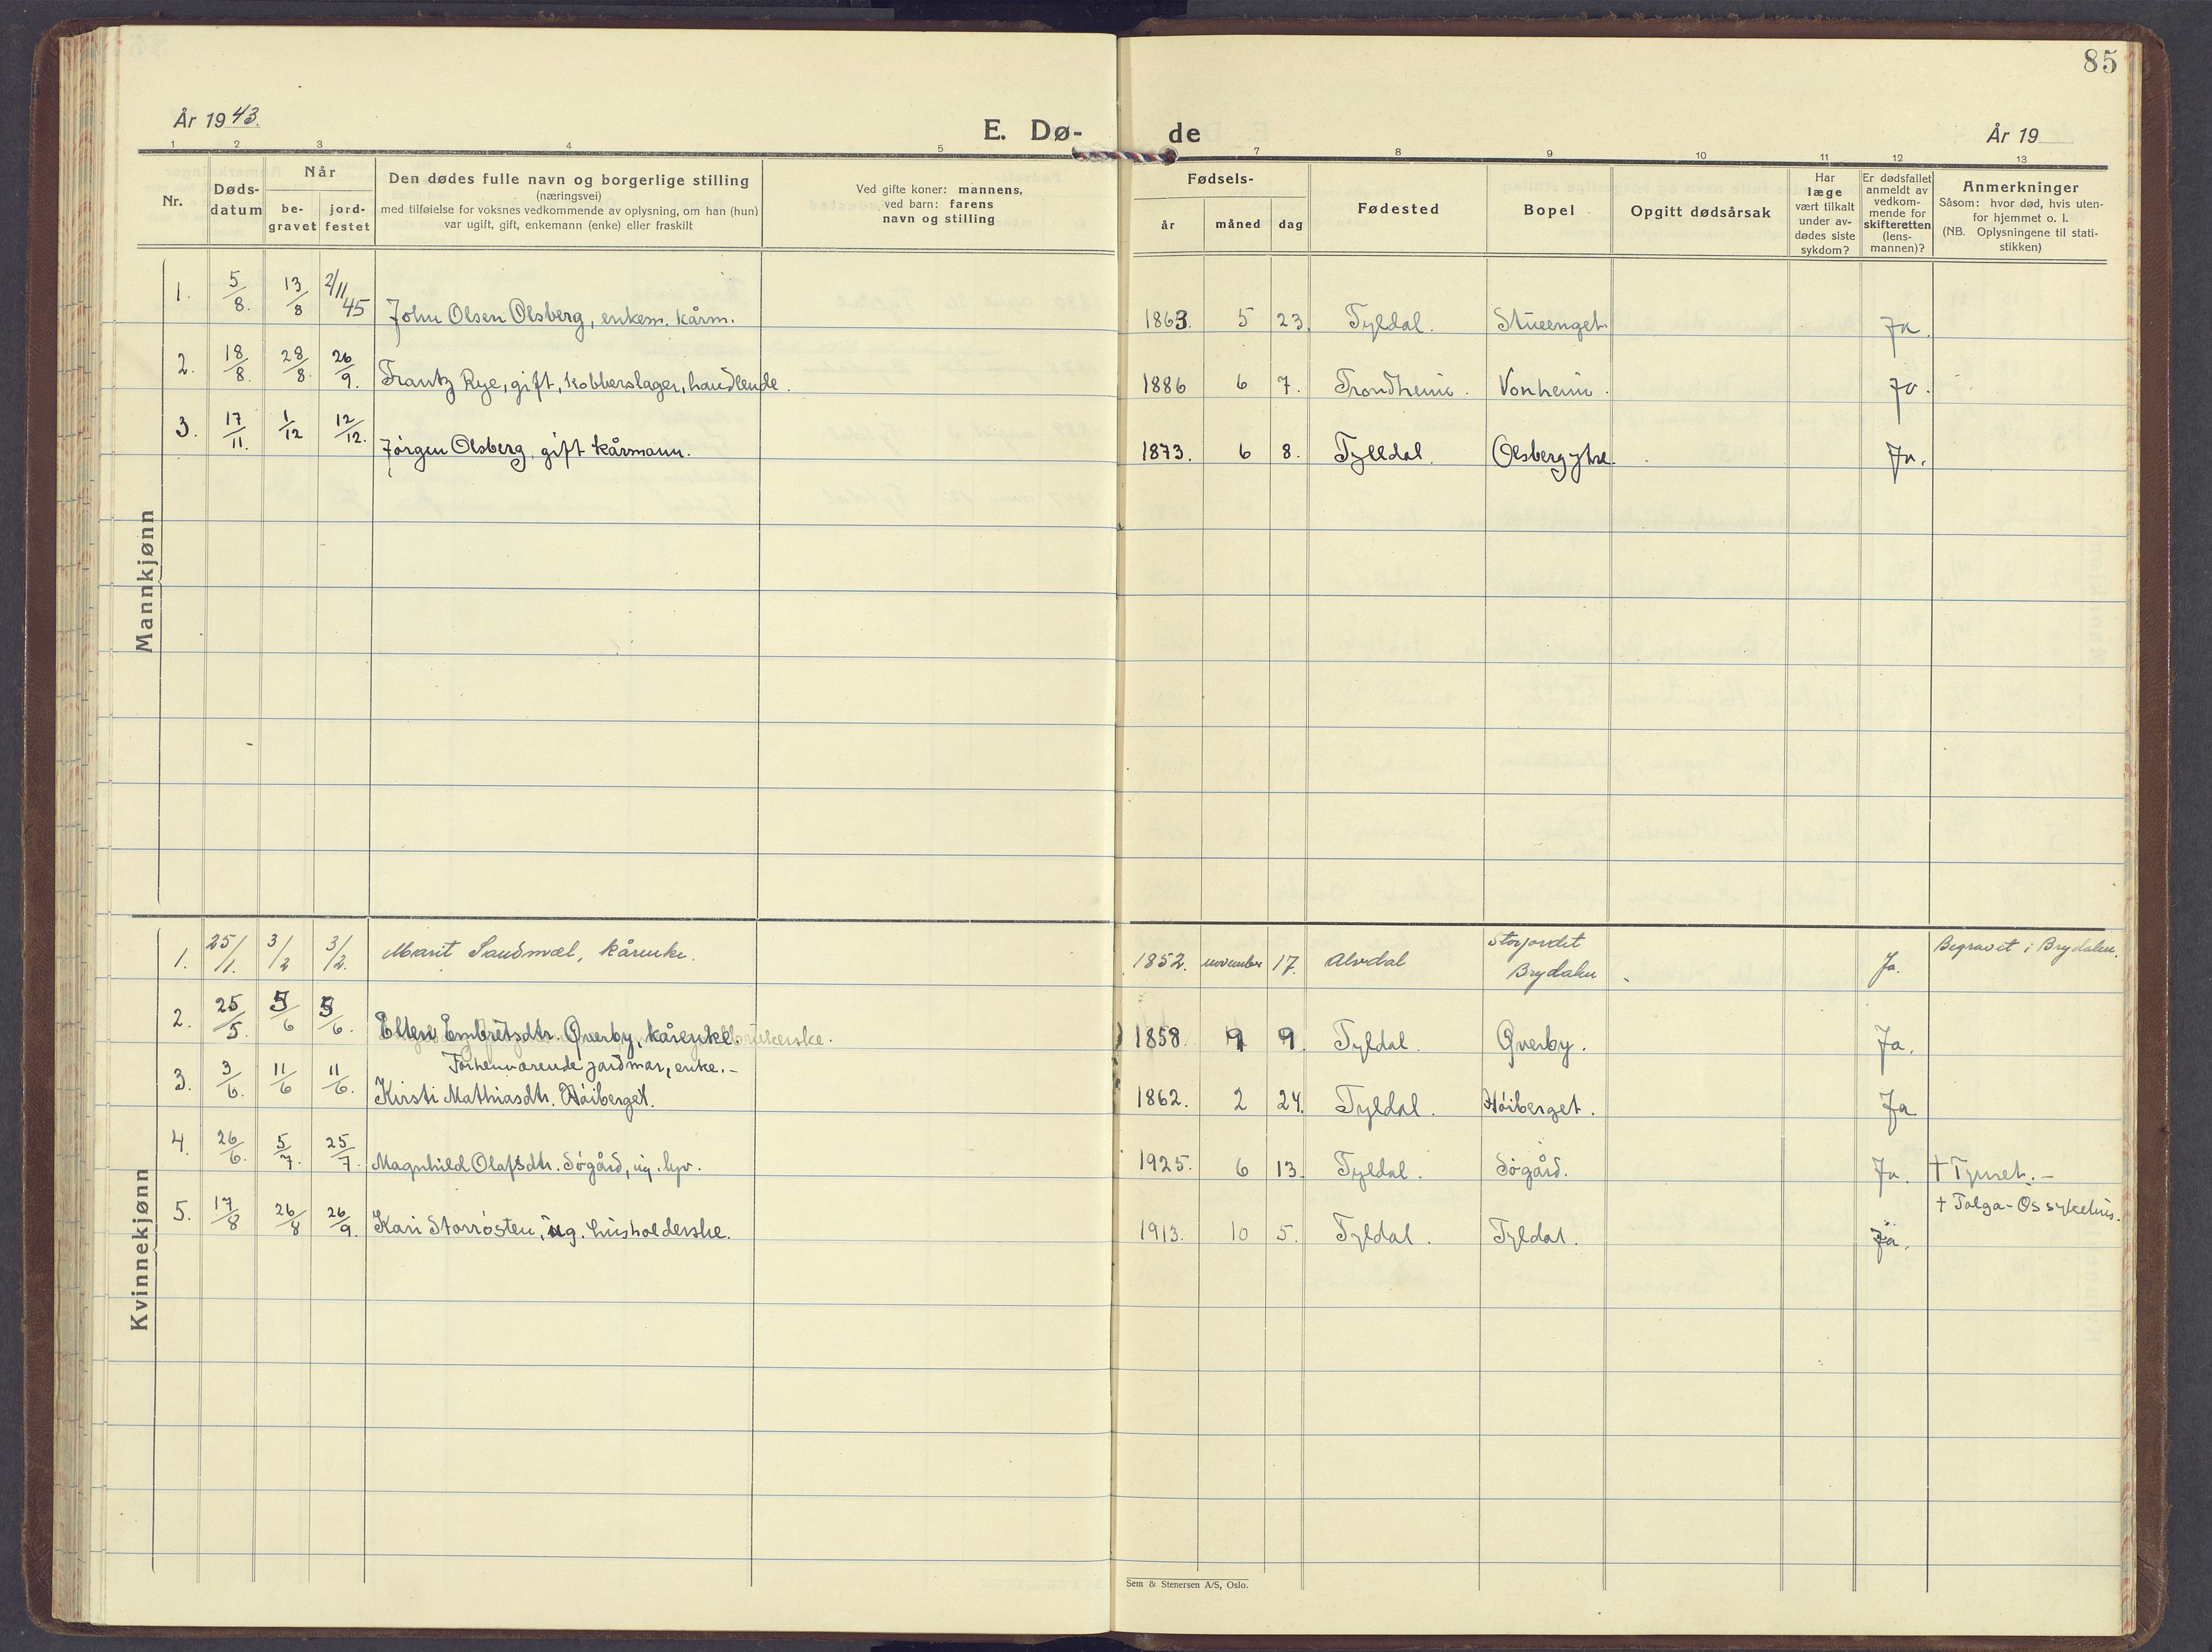 85
År 1943.
E. Dø-
de
År 19
1 2 3 4 5 7 8 9 10 11 12 13
Nr.
Døds-
datum
Når
be-
gravet
jord-
festet
Den dødes fulle navn og borgerlige stilling
(næringsvei)
med tilføielse for voksnes vedkommende av oplysning, om han (hun)
var ugift, gift, enkemann (enke) eller fraskilt
Ved gifte koner: mannens,
ved barn: farens
navn og stilling
Fødsels-
år måned dag
Fødested
Bopel
Opgitt dødsårsak
Har
læge
vært tilkalt
under av-
dødes siste
sykdom?
Er dødsfallet
anmeldt av
vedkom-
mende for
skifteretten
(lens-
mannen)?
Anmerkninger
Såsom: hvor død, hvis uten-
for hjemmet o. l.
(NB. Oplysningene til stati-
stikken)
Mannkjønn
1. 5/8. 13/8 2/11 45 John Olsen Olsberg, enkem. kårm. 1863. 5 23. Tyldal. Stueenget. Ja.
2. 18/8. 28/8. 26/9. Frantz Rye, gift, kobberslager, handlende. 1886 6 7. Trondheim. Vonheim. Ja.
3. 17/11. 1/12 12/12. Jørgen Olsberg, gift kårmann. 1873. 6 8. Tylldal. Ja.
Kvinnekjønn
1. 25/1. 3/2 3/2. Marit Sandmæl, kårenke. 1852. november 17. Alvdal Storjordet
Brydalen Ja. Begravet i Brydalen.
2. 25/5. 5/6 5/6. Ellen Embretsdtr. Qverby, 1858. 9 9. Tyldal. Qverby. Ja.
Forhenværende gardmor, enke.-
3. 3/6. 11/6 11/6. Kirsti Mathiasdtr. Høiberget. 1862. 2 24. Tyldal. Høiberget. Ja.
4. 26/6. 5/7. 25/7. Magnhild Olafsdtr. Søgård, ug. lyv. 1925. 6 13. Tyldal. Søgård. Ja. † Tynset.-
5. 17/8 26/8 26/9. Kari Storrøsten, ug. husholderske. 1913. 10 5. Tyldal. Tyldal. Ja. † Tolga-Os sykehus.
Sem & Stenersen A/S, Oslo.